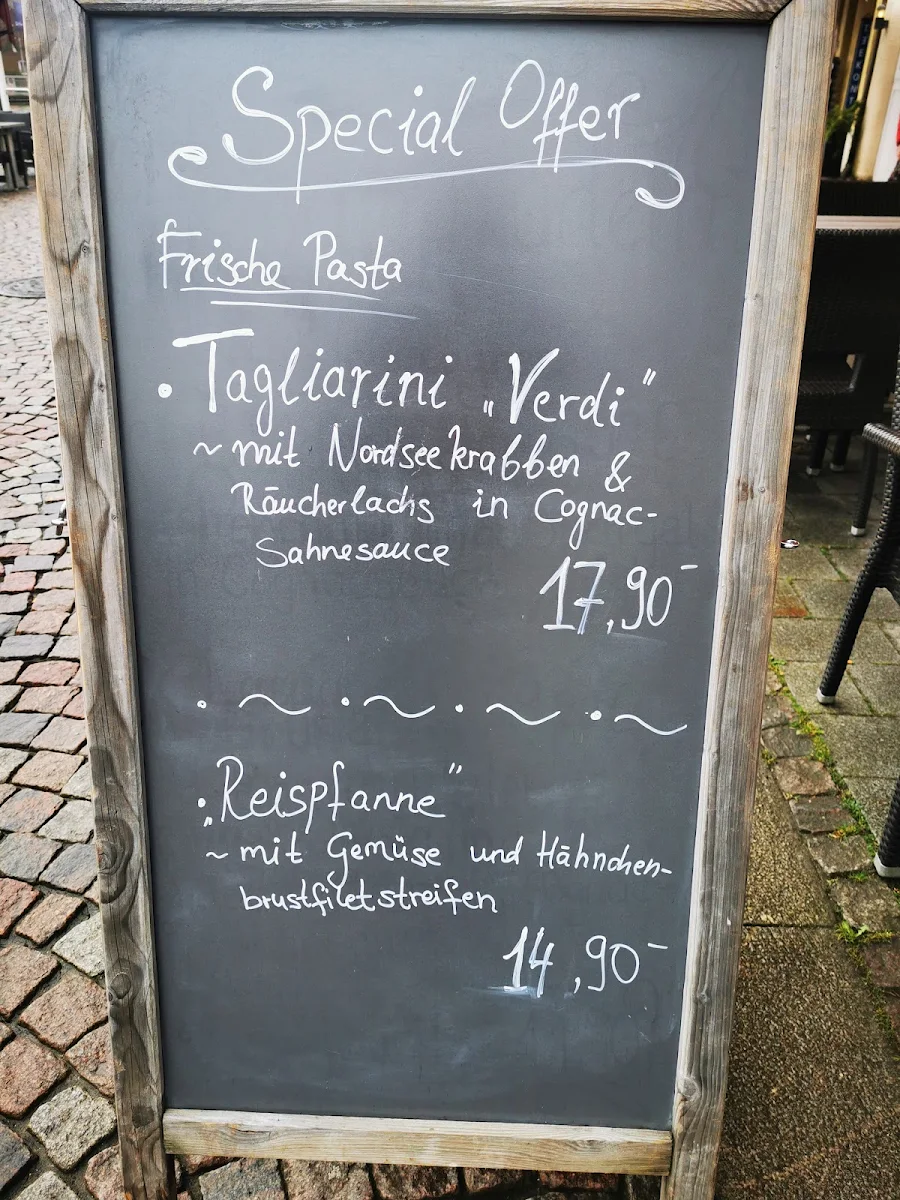 Special Offer
Frische Pasta
• Tagliarini „Verdi"
~ mit Nordseekrabben &
Räucherlachs in Cognac-
Sahnesauce
17,90-
• ~ • ~ • ~ • ~
• „Reispfanne"
~ mit Gemüse und Hähnchen-
brustfiletstreifen
14,90-